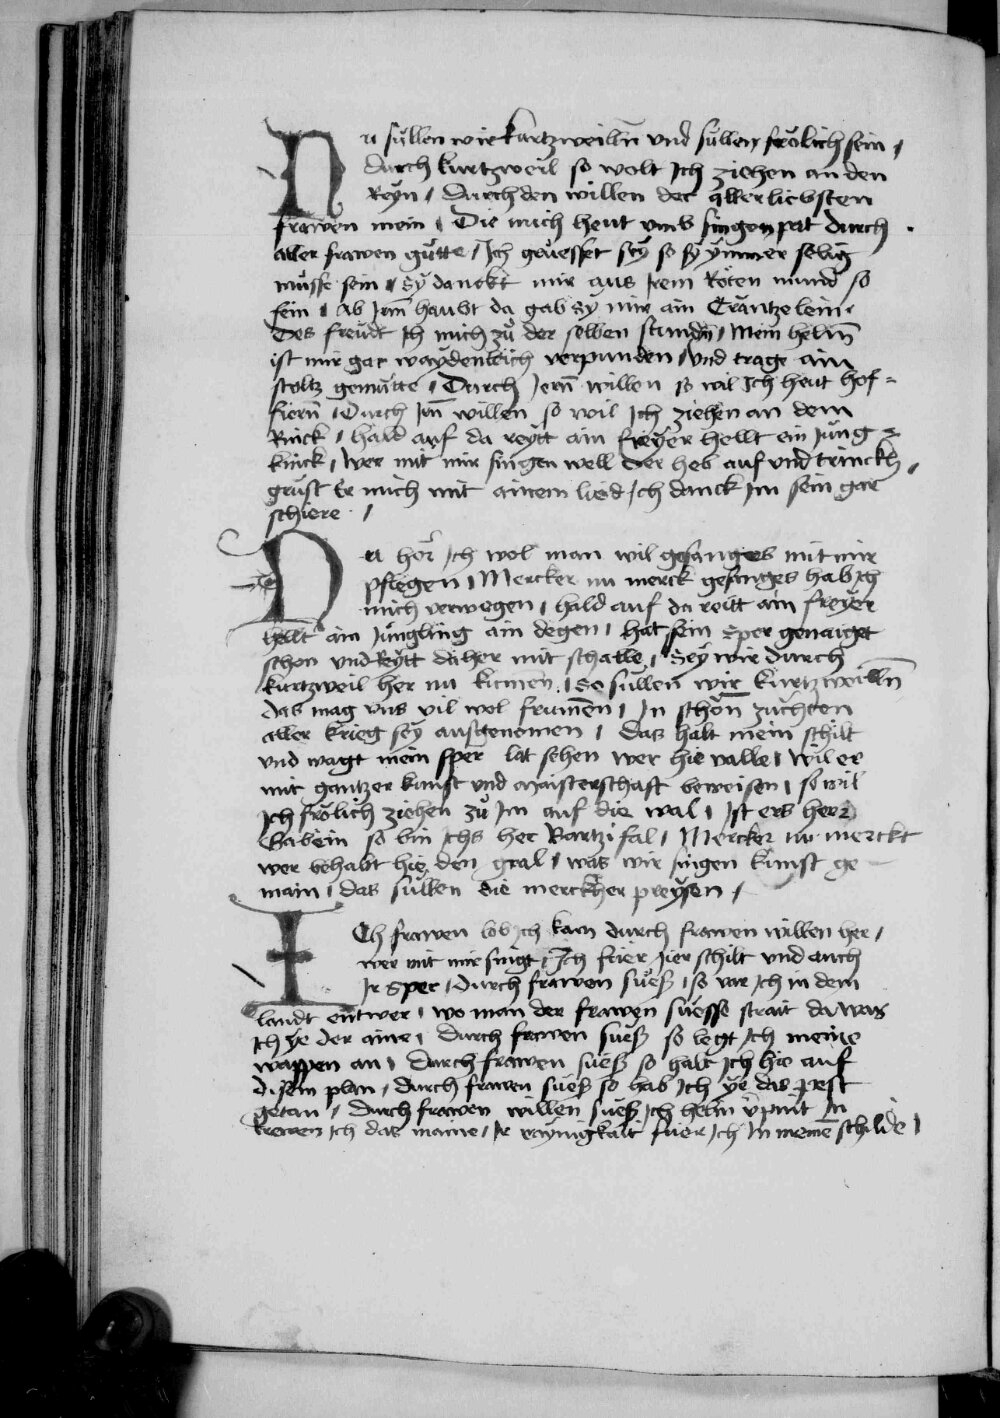 Nu süllen wir kurtzweilln̄ vnd süllen frölich sein /
durch kurtzweil so wolt Ich ziehen an den
Reyn / durch den willen der allerliebsten
frawen mein / Die mich heut vmb singen pat durch
aller frawen gütte / Ich geuesset sey so sy ymmer selig
müsse sein / Sy danckt mir aus Irem Roten mund so
fein / Ab Irm̄ haubt da gab sy mir ain Cräntzelein /
Des freudt Ich mich zů der selben stunden / Mein helm̄
ist mir gar waydenleich verpunden / vnd trage ain
stoltz gemütte / Durch Iern̄ willen so wil Ich heut hof=
fiern̄ / Durch Irn̄ willen so wil Ich ziehen an dem
Rinck / hald auf da reytt ain freyer hellt ein Jüng=
kinck / wer mit mir singen well der heb auf vnd trinckh /
grüst Er mich mit ainem lied Ich danck Im sein gar
schiere /
Nu hör Ich wol man wil gesanges mit mir
pflegen / Mercker nu merck gesanges hab Ich
mich verwegen / hald auf da reitt ain freyer
hellt ain Jüngling ain degen / hat sein sper genaiget
schon vnd Reytt da her mit schalle / Sey wir durch
kurtzweil her nu kumen / So süllen wir kurtzweilln̄
das mag vns vil wol frumen̄ / In schön̄ züchten
aller krieg sey ausgenomen / Das halt mein schilt
vnd wagt mein sper lat sehen wer hie valle / Wil er
mit gantzer kunst vnd maisterschaft beweisen / so wil
Ich frölich ziehen zů Im auf die wal / Ist ers herr
Gabein so bin Ichs her Partzifal / Mercker nu merckt
wer behabt hie den gral / was wir singen kunst ge
main / das süllen die merckher preysen /
ICh frawen lob Ich kam durch frawen willen her /
wer mit mir singt / Ich füer Ier schilt vnd auch
Ir Sper / Durch frawen süeß / so var Ich in dem
landt entwer / wo man der frawen süesse strait da was
Ich ye der aine / durch frawen süeß so legt Ich meine
wappen an / durch frawen süeß so halt Ich hie auf
disem plan / durch frawen süeß so hab Ich ye das pest
getan / durch frawen willen süeß Ich helm v̄pint In
trewen Ich das maine / Ir raynigkait füer Ich In meine schilde /